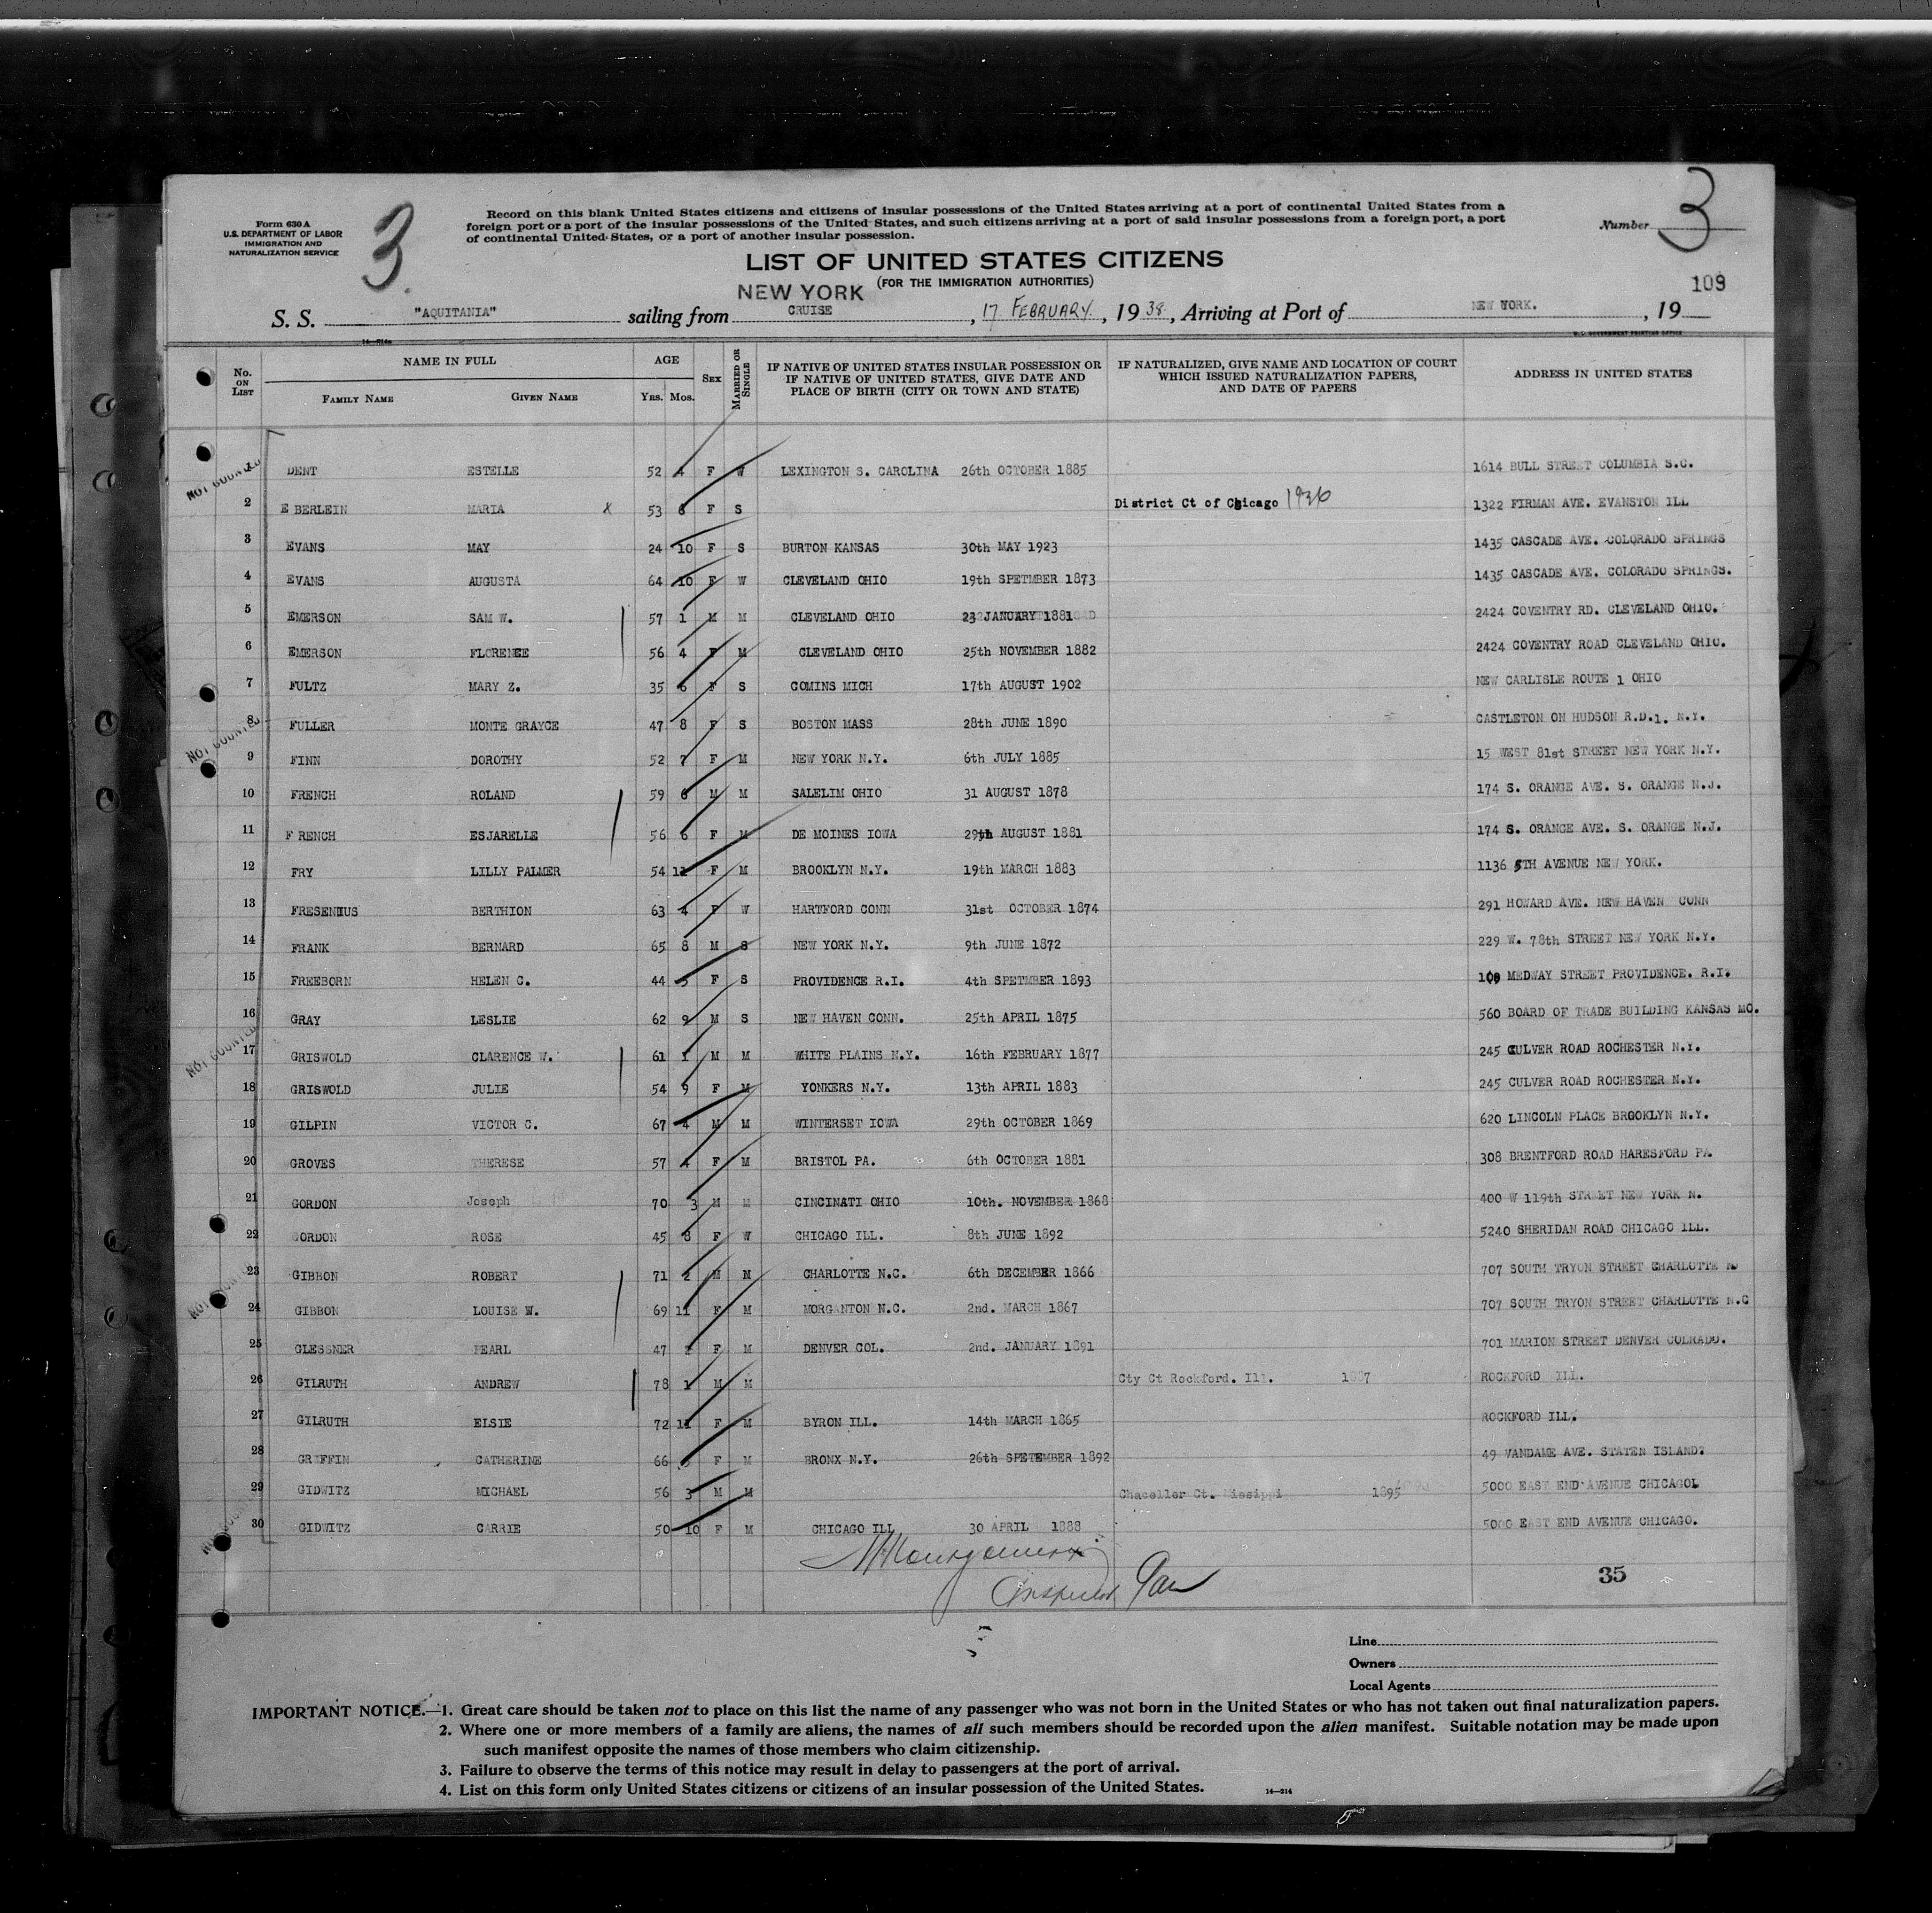 Form 630 A
U.S. DEPARTMENT OF LABOR
IMMIGRATION AND
NATURALIZATION SERVICE
3
Record on this blank United States citizens and citizens of insular possessions of the United States arriving at a port of continental United States from a
foreign port or a port of the insular possessions of the United States, and such citizens arriving at a port of said insular possessions from a foreign port, a port
of continental United States, or a port of another insular possession.
Number 3
LIST OF UNITED STATES CITIZENS
(FOR THE IMMIGRATION AUTHORITIES)
109
NEW YORK
S. S. "AQUITANIA" sailing from CRUISE, 17 FEBRUARY, 1938, Arriving at Port of NEW YORK., 19
14—214
U.S. GOVERNMENT PRINTING OFFICE
No. ON LIST
NAME IN FULL
FAMILY NAME GIVEN NAME
AGE
YRS. MOS.
SEX
MARRIED OR SINGLE
IF NATIVE OF UNITED STATES INSULAR POSSESSION OR
IF NATIVE OF UNITED STATES, GIVE DATE AND
PLACE OF BIRTH (CITY OR TOWN AND STATE)
IF NATURALIZED, GIVE NAME AND LOCATION OF COURT
WHICH ISSUED NATURALIZATION PAPERS,
AND DATE OF PAPERS
ADDRESS IN UNITED STATES
NOT COUNTED
1 DENT ESTELLE 52 4 F W LEXINGTON S. CAROLINA 26th OCTOBER 1885 1614 BULL STREET COLUMBIA S.C.
2 E BERLEIN MARIA x 53 F S District Ct of Chicago 1936 1322 FIRMAN AVE. EVANSTON ILL
3 EVANS MAY 24 10 F S BURTON KANSAS 30th MAY 1923 1435 CASCADE AVE. COLORADO SPRINGS
4 EVANS AUGUSTA 64 10 F W CLEVELAND OHIO 19th SPETMBER 1873 1435 CASCADE AVE. COLORADO SPRINGS.
5 EMERSON SAM W. 57 1 M M CLEVELAND OHIO 23 JANUARY 1881 2424 COVENTRY RD. CLEVELAND OHIO.
6 EMERSON FLORENCE 56 4 F M CLEVELAND OHIO 25th NOVEMBER 1882 2424 COVENTRY ROAD CLEVELAND OHIO.
7 FULTZ MARY Z. 35 6 F S COMINS MICH 17th AUGUST 1902 NEW CARLISLE ROUTE 1 OHIO
8 FULLER MONTE GRAYCE 47 8 F S BOSTON MASS 28th JUNE 1890 CASTLETON ON HUDSON R.D.1. N.Y.
NOT COUNTED
9 FINN DOROTHY 52 7 F M NEW YORK N.Y. 6th JULY 1885 15 WEST 81st STREET NEW YORK N.Y.
10 FRENCH ROLAND 59 6 M M SALELIM OHIO 31 AUGUST 1878 174 S. ORANGE AVE. S. ORANGE N.J.
11 F RENCH ESJARELLE 56 6 F M DE MOINES IOWA 29th AUGUST 1881 174 S. ORANGE AVE. S. ORANGE N.J.
12 FRY LILLY PALMER 54 F M BROOKLYN N.Y. 19th MARCH 1883 1136 5TH AVENUE NEW YORK.
13 FRESENIUS BERTHION 63 4 F W HARTFORD CONN 31st OCTOBER 1874 291 HOWARD AVE. NEW HAVEN CONN
14 FRANK BERNARD 65 8 M S NEW YORK N.Y. 9th JUNE 1872 229 W. 78th STREET NEW YORK N.Y.
15 FREEBORN HELEN C. 44 5 F S PROVIDENCE R.I. 4th SPETMBER 1893 MEDWAY STREET PROVIDENCE. R.I.
16 GRAY LESLIE 62 9 M S NEW HAVEN CONN. 25th APRIL 1875 560 BOARD OF TRADE BUILDING KANSAS MO.
NOT COUNTED
17 GRISWOLD CLARENCE W. 61 1 M M WHITE PLAINS N.Y. 16th FEBRUARY 1877 245 CULVER ROAD ROCHESTER N.Y.
18 GRISWOLD JULIE 54 9 F M YONKERS N.Y. 13th APRIL 1883 245 CULVER ROAD ROCHESTER N.Y.
19 GILPIN VICTOR C. 67 4 M M WINTERSET IOWA 29th OCTOBER 1869 620 LINCOLN PLACE BROOKLYN N.Y.
20 GROVES THERESE 57 4 F M BRISTOL PA. 6th OCTOBER 1881 308 BRENTFORD ROAD HARESFORD PA
21 GORDON Joseph 70 3 M M CINCINATI OHIO 10th. NOVEMBER 1868 400 W 119th STREET NEW YORK N.
22 GORDON ROSE 45 8 F W CHICAGO ILL. 8th JUNE 1892 5240 SHERIDAN ROAD CHICAGO ILL.
23 GIBBON ROBERT 71 2 M M CHARLOTTE N.C. 6th DECEMBER 1866 707 SOUTH TRYON STREET CHARLOTTE
24 GIBBON LOUISE W. 69 11 F M MORGANTON N.C. 2nd. MARCH 1867 707 SOUTH TRYON STREET CHARLOTTE N.C
25 GLESSNER PEARL 47 F M DENVER COL. 2nd. JANUARY 1891 701 MARION STREET DENVER COLRADO.
26 GILRUTH ANDREW 78 1 M M Cty Ct Rockford. Ill. 1887 ROCKFORD ILL.
27 GILRUTH ELSIE 72 11 F M BYRON ILL. 14th MARCH 1865 ROCKFORD ILL.
28 GRIFFIN CATHERINE 66 F M BRONX N.Y. 26th SPETEMBER 1892 49 VANDAME AVE. STATEN ISLAND.
29 GIDWITZ MICHAEL 56 3 M M Chaceller Ct. Missippi 1895 5000 EAST END AVENUE CHICAGOL
30 GIDWITZ CARRIE 50 10 F M CHICAGO ILL 30 APRIL 1888 5000 EAST END AVENUE CHICAGO.
Montgomery
Inspector
35
Line
Owners
Local Agents
IMPORTANT NOTICE.—1. Great care should be taken not to place on this list the name of any passenger who was not born in the United States or who has not taken out final naturalization papers.
2. Where one or more members of a family are aliens, the names of all such members should be recorded upon the alien manifest. Suitable notation may be made upon
such manifest opposite the names of those members who claim citizenship.
3. Failure to observe the terms of this notice may result in delay to passengers at the port of arrival.
4. List on this form only United States citizens or citizens of an insular possession of the United States.
14—214